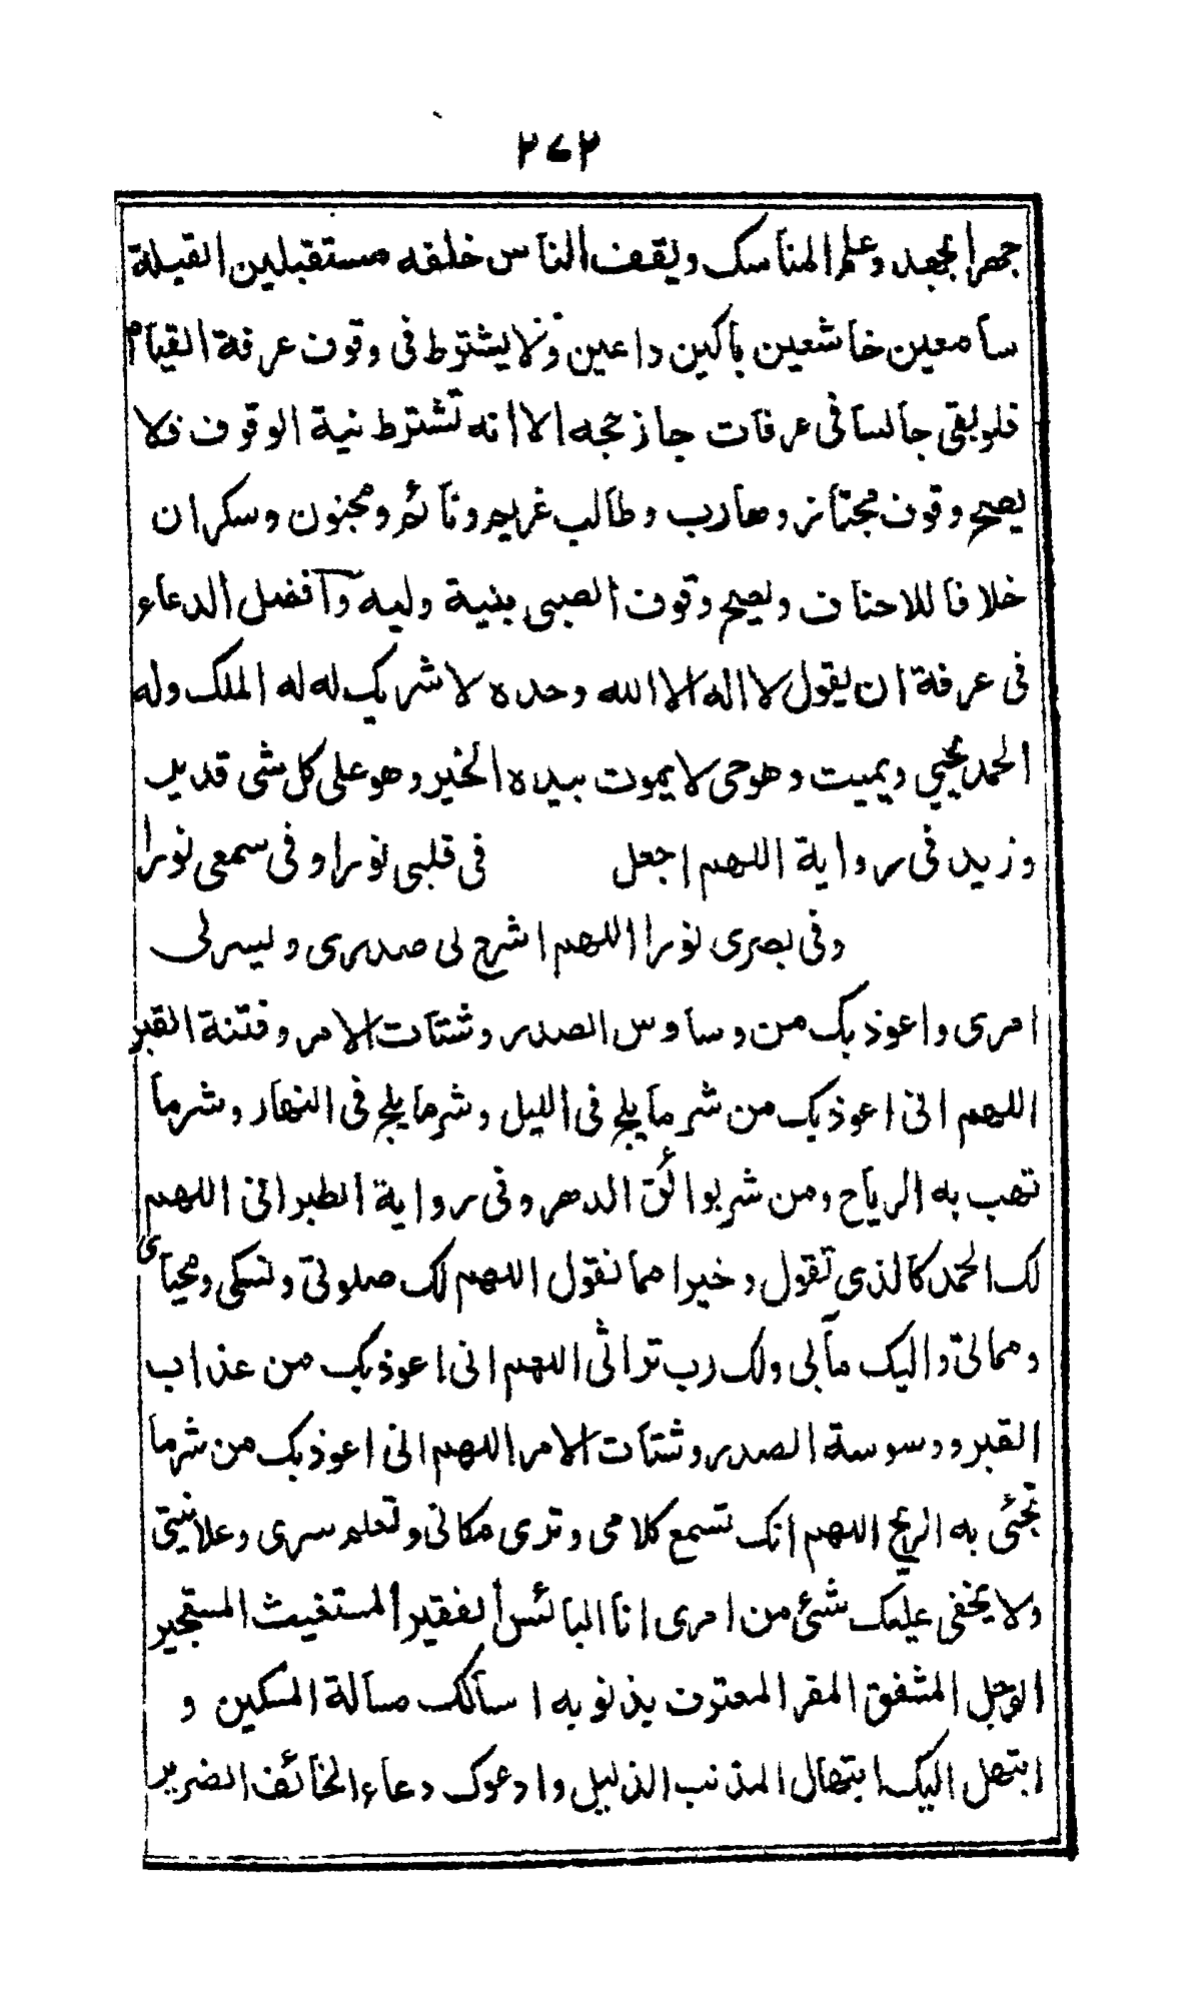 ٢٧٢
جهرا بجهد وعلم المناسك ويقف الناس خلفه مستقبلين القبلة
سامعين خاشعين باكين داعين ولا يشترط فى وقوف عرفة القيام
فلو بقى جالسا فى عرفات جاز حجه الا انه تشترط نية الوقوف فلا
يصح وقوف مجتاز وهارب وطالب غريم ونائم ومجنون وسكران
خلافا للاحناف ويصح وقوف الصبى بنية وليه وافضل الدعاء
فى عرفة ان يقول لا اله الا الله وحده لا شريك له له الملك وله
الحمد يحيي ويميت وهو حى لا يموت بيده الخير وهو على كل شى قدير
وزيد فى رواية اللهم اجعل فى قلبى نورا وفى سمعى نورا
وفى بصرى نورا اللهم اشرح لى صدرى ويسر لى
امرى واعوذ بك من وساوس الصدر وشتات الامر وفتنة القبر
اللهم انى اعوذ بك من شر ما يلج فى الليل وشر ما يلج فى النهار وشر ما
تهب به الرياح ومن شر بوائق الدهر وفى رواية الطبرانى اللهم
لك الحمد كالذى تقول وخيرا مما نقول اللهم لك صلوتى ونسكى ومحياى
ومماتى واليك مآبى ولك رب تراثى اللهم انى اعوذ بك من عذاب
القبر ووسوسة الصدر وشتات الامر اللهم انى اعوذ بك من شر ما
تجئى به الريح اللهم انك تسمع كلامى وترى مكانى وتعلم سرى وعلانيتى
ولا يخفى عليك شئ من امرى انا البائس الفقير المستغيث المستجير
الوجل المشفق المقر المعترف بذنوبه اسألك مسألة المسكين و
ابتهل اليك ابتهال المذنب الذليل وادعوك دعاء الخائف الضرير